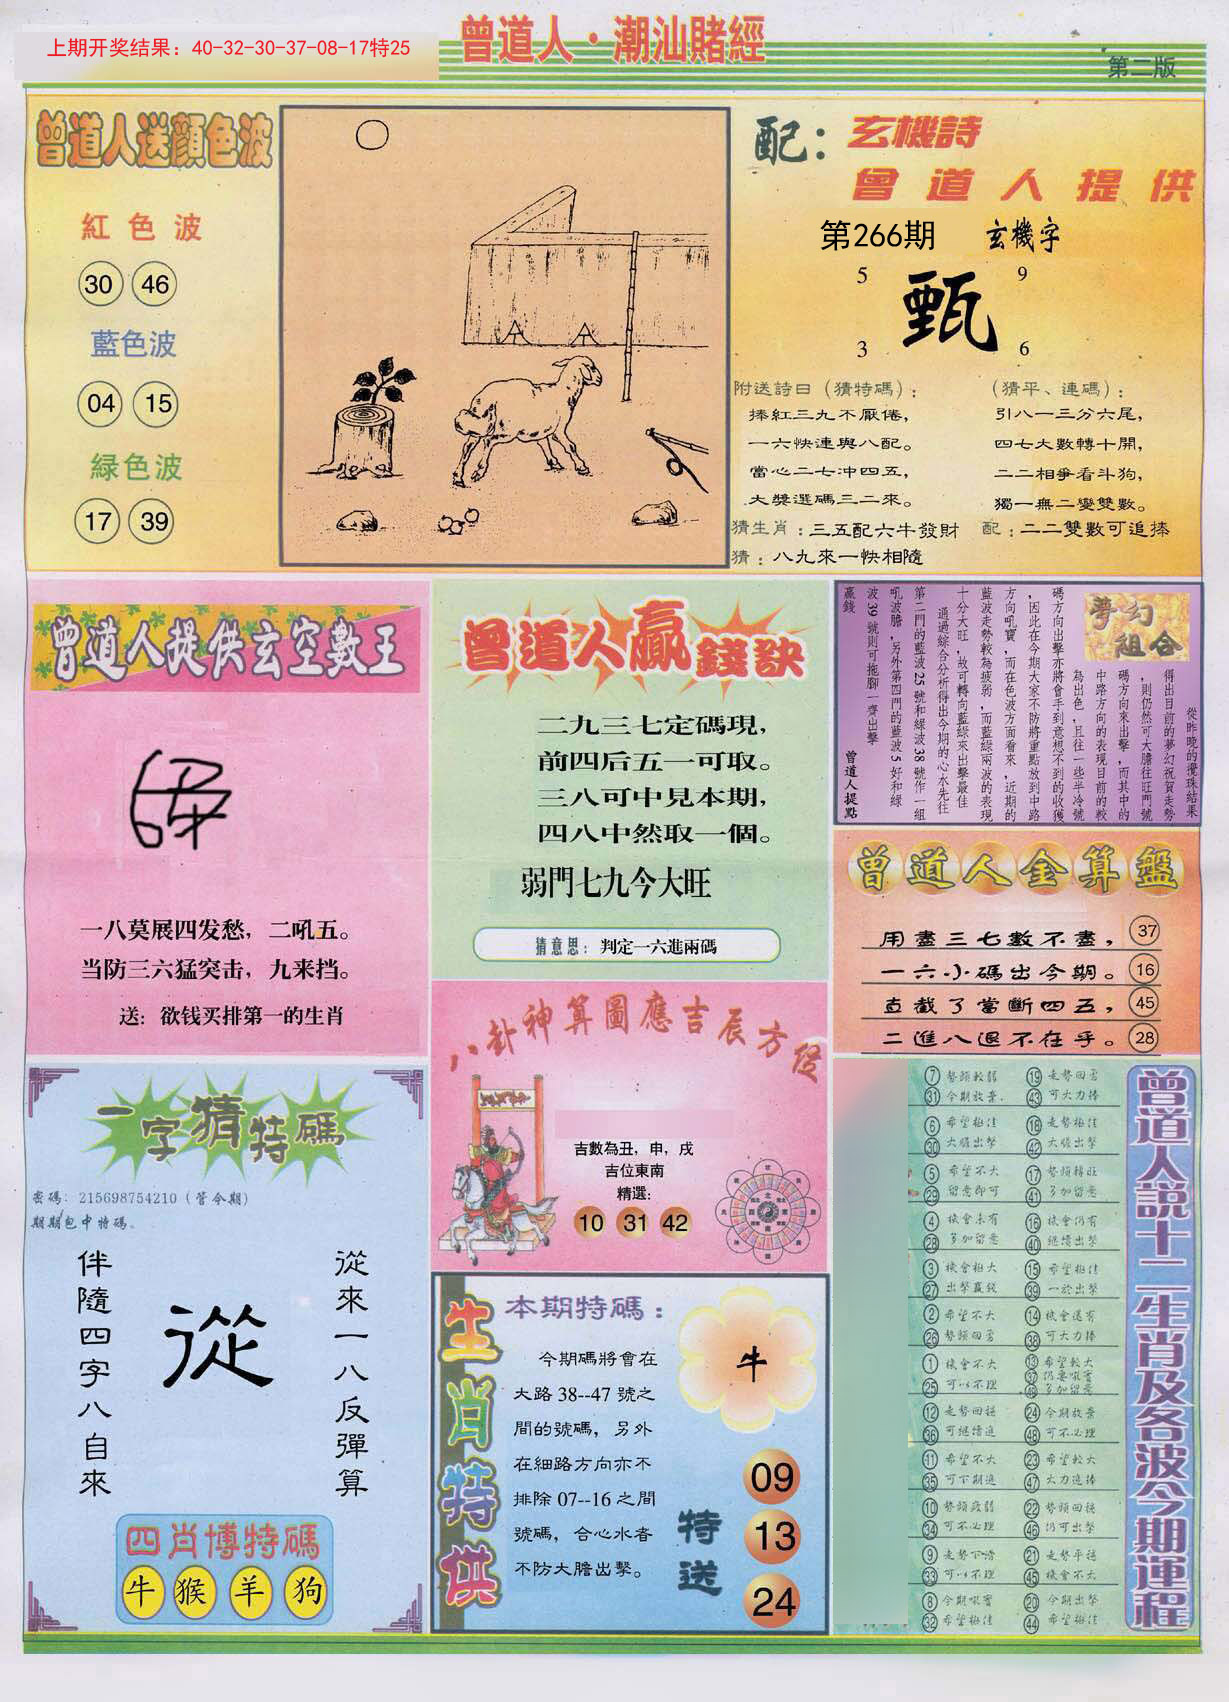 上期开奖结果：40-32-30-37-08-17特25
曾道人·潮汕賭經
第二版
曾道人送顏色波
紅色波
30 46
藍色波
04 15
緑色波
17 39
配：玄機詩
曾道人提供
第266期 玄機字
5 9
甄
3 6
附送詩曰（猜特碼）：
捧紅三九不厭倦，
一六快連與八配。
當心二七冲四五，
大獎選碼三二來。
猜生肖：三五配六牛發財
猜：八九來一快相隨
（猜平、連碼）：
引八一三分六尾，
四七大數轉十開，
二二相爭看斗狗，
獨一無二變雙數。
配：二二雙數可追捧
曾道人提供玄空數王
一八莫展四发愁，二吼五。
当防三六猛突击，九来挡。
送：欲钱买排第一的生肖
曾道人贏錢訣
二九三七定碼現，
前四后五一可取。
三八可中見本期，
四八中然取一個。
弱門七九今大旺
猜意思：判定一六進兩碼
夢幻組合
從昨晚的攪珠結果
得出目前的夢幻祝賀走勢
，則仍然可大膽往旺門號
碼方向來出擊，而其中的
中路方向的表現目前的較
為出色，且往一些半冷號
碼方向出擊亦將會手到意想不到的收獲
，因此在今期大家不防將重點放到中路
方向吼寶，而在色波方面看來，近期的
藍波走勢較為疲弱，而藍綠兩波的表現
十分大旺，故可轉向藍綠來出擊最佳
通過綜合分析得出今期的心水先往
第二門的藍波25號和綠波38號作一組
吼波膽，另外第四門的藍波5好和綠
波39號則可拖腳一齊出擊
贏錢
曾道人提點
曾道人金算盤
用盡三七數不盡， 37
一六小碼出今期。 16
直截了當斷四五， 45
二進八退不在乎。 28
八卦神算圖應吉辰方位
吉數為丑，申，戌
吉位東南
精選:
10 31 42
一字猜特碼
密碼：215698754210（管今期）
期期包中特碼。
從來一八反彈算
從
伴隨四字八自來
四肖博特碼
牛 猴 羊 狗
生肖特供
本期特碼：
今期碼將會在
大路38--47號之
間的號碼，另外
在細路方向亦不
排除07--16之間
號碼，合心水者
不防大膽出擊。
牛
特送
09
13
24
曾道人説十二生肖及各波今期運程
7 勢頭較弱 19 走勢回勇
31 今期放棄. 43 可大力捧
6 希望極佳 18 走勢極佳
30 大膽出擊 42 大膽出擊
5 希望不大 17 勢頭轉旺
29 留意即可 41 多加留意
4 機會未有 16 機會仍有
28 多加留意 40 繼續出擊
3 機會極大 15 希望極佳
27 出擊贏錢 39 一於出擊
2 希望不大 14 機會還有
26 勢頭回勇 38 可大力捧
1 機會不大 13 希望較大
25 可以不理 37 仍要吼實
49 多加留意
12 走勢回穩 24 今期放棄
36 可繼續追 48 可不必理
11 希望不大 23 希望較大
35 可下期追 47 大力追捧
10 勢頭疲弱 22 勢頭回穩
34 可不必理 46 仍可出擊
9 走勢下滑 21 走勢平穩
33 可以不理 45 機會不大
8 今期吼實 20 今期出擊
32 希望極佳 44 希望極佳